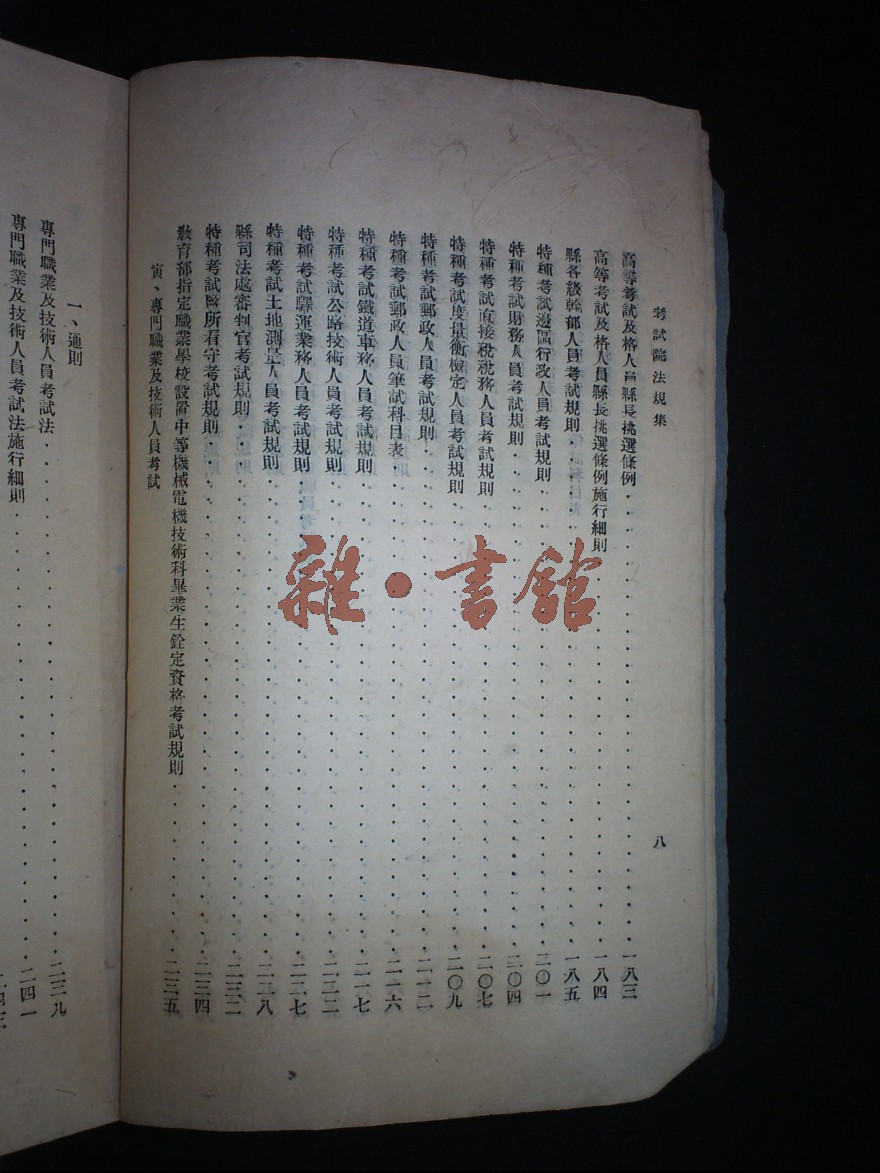 考試院法規集
八
高等考試及格人員縣長挑選條例 一八三
高等考試及格人員縣長挑選條例施行細則 一八四
縣各級幹部人員考試規則 一八五
特種考試邊區行政人員考試規則 二〇一
特種考試財務人員考試規則 二〇四
特種考試直接稅稅務人員考試規則 二〇七
特種考試度量衡檢定人員考試規則 二〇九
特種考試郵政人員考試規則 二一二
特種考試郵政人員筆試科目表 二一六
特種考試鐵道車務人員考試規則 二一七
特種考試公路技術人員考試規則 二二二
特種考試驛運業務人員考試規則 二二七
特種考試土地測量人員考試規則 二二八
縣司法處審判官考試規則 二三二
特種考試監所看守考試規則 二三四
教育部指定職業學校設置中等機械電機技術科畢業生銓定資格考試規則 二三五
寅、專門職業及技術人員考試
一、通則
專門職業及技術人員考試法 二三九
專門職業及技術人員考試法施行細則 二四一
雜·書館